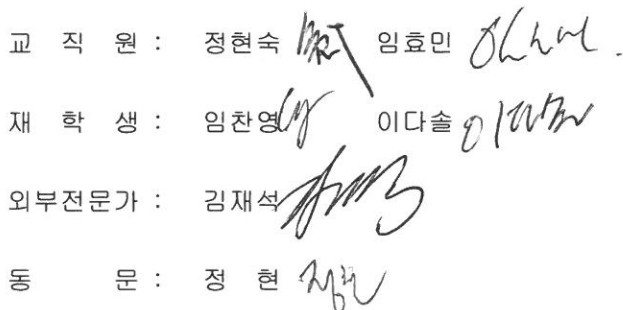 교 직 원 : 정현숙 임효민
재 학 생 : 임찬영 이다솔
외부전문가 : 김재석
동 문 : 정 현 정현